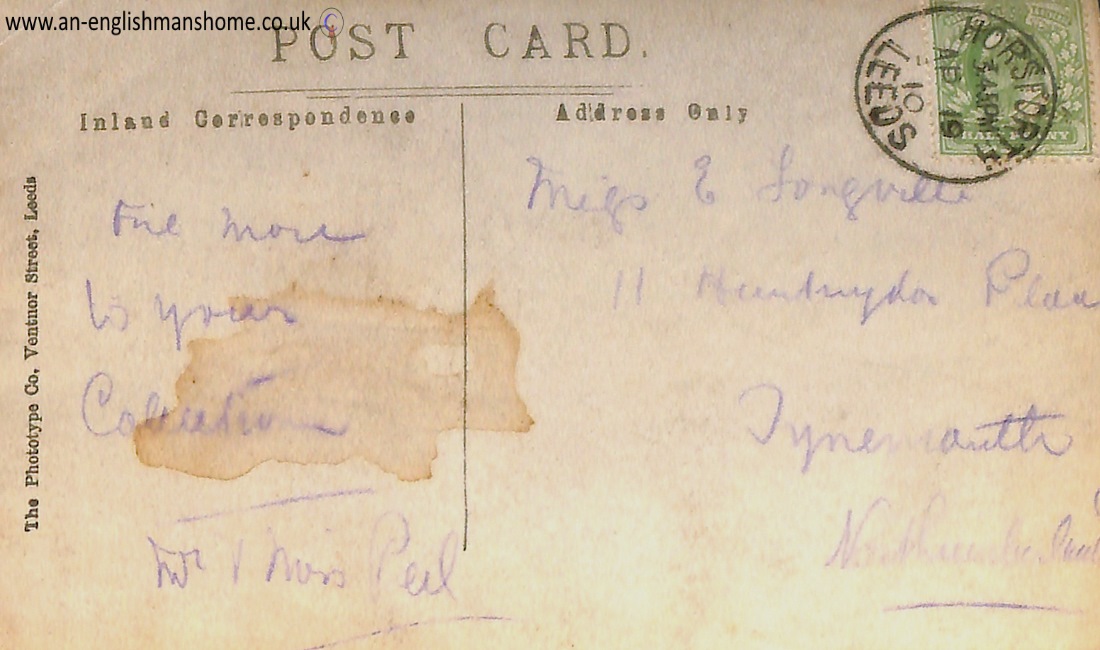 www.an-englishmanshome.co.uk ©
POST CARD.
Inland Correspondence
Address Only
HORSFORTH
LEEDS
AP 19
10
HALFPENNY
The Phototype Co, Ventnor Street, Leeds
more
to your
Collection
Miss Peel
Miss E Longville
11 Huntingdon Place
Tynemouth
Northumberland